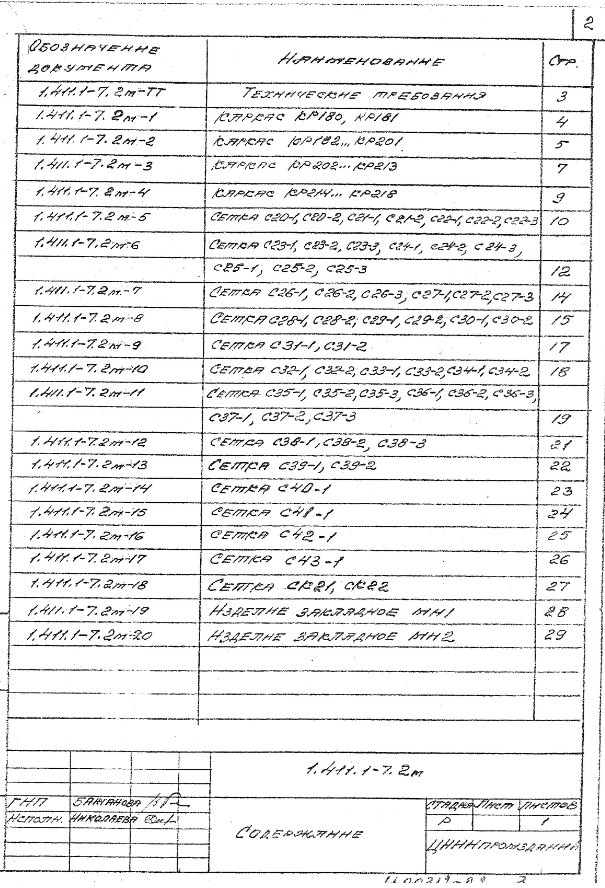 2
Обозначение документа Наименование Стр.
1.411.1-7.2м-ТТ Технические требования 3
1.411.1-7.2м-1 Каркас КР180, КР181 4
1.411.1-7.2м-2 Каркас КР182...КР201 5
1.411.1-7.2м-3 Каркас КР202...КР213 7
1.411.1-7.2м-4 Каркас КР214...КР218 9
1.411.1-7.2м-5 Сетка С20-1, С20-2, С21-1, С21-2, С22-1, С22-2, С22-3 10
1.411.1-7.2м-6 Сетка С23-1, С23-2, С23-3, С24-1, С24-2, С24-3,
С25-1, С25-2, С25-3 12
1.411.1-7.2м-7 Сетка С26-1, С26-2, С26-3, С27-1, С27-2, С27-3 14
1.411.1-7.2м-8 Сетка С28-1, С28-2, С29-1, С29-2, С30-1, С30-2 15
1.411.1-7.2м-9 Сетка С31-1, С31-2 17
1.411.1-7.2м-10 Сетка С32-1, С32-2, С33-1, С33-2, С34-1, С34-2 18
1.411.1-7.2м-11 Сетка С35-1, С35-2, С35-3, С36-1, С36-2, С36-3,
С37-1, С37-2, С37-3 19
1.411.1-7.2м-12 Сетка С38-1, С38-2, С38-3 21
1.411.1-7.2м-13 Сетка С39-1, С39-2 22
1.411.1-7.2м-14 Сетка С40-1 23
1.411.1-7.2м-15 Сетка С41-1 24
1.411.1-7.2м-16 Сетка С42-1 25
1.411.1-7.2м-17 Сетка С43-1 26
1.411.1-7.2м-18 Сетка СК21, СК22 27
1.411.1-7.2м-19 Изделие закладное МН1 28
1.411.1-7.2м-20 Изделие закладное МН2 29
1.411.1-7.2м
ГИП
Исполн. Николаева
Содержание
Стадия Лист Листов
Р 1
ЦНИИпромзданий